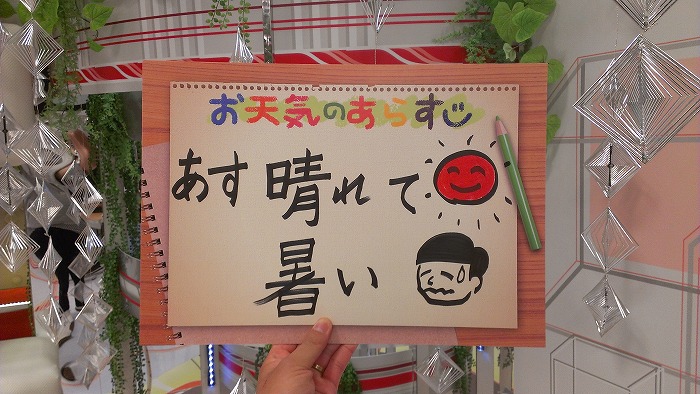 お天気のあらすじ
あす晴れて
暑い